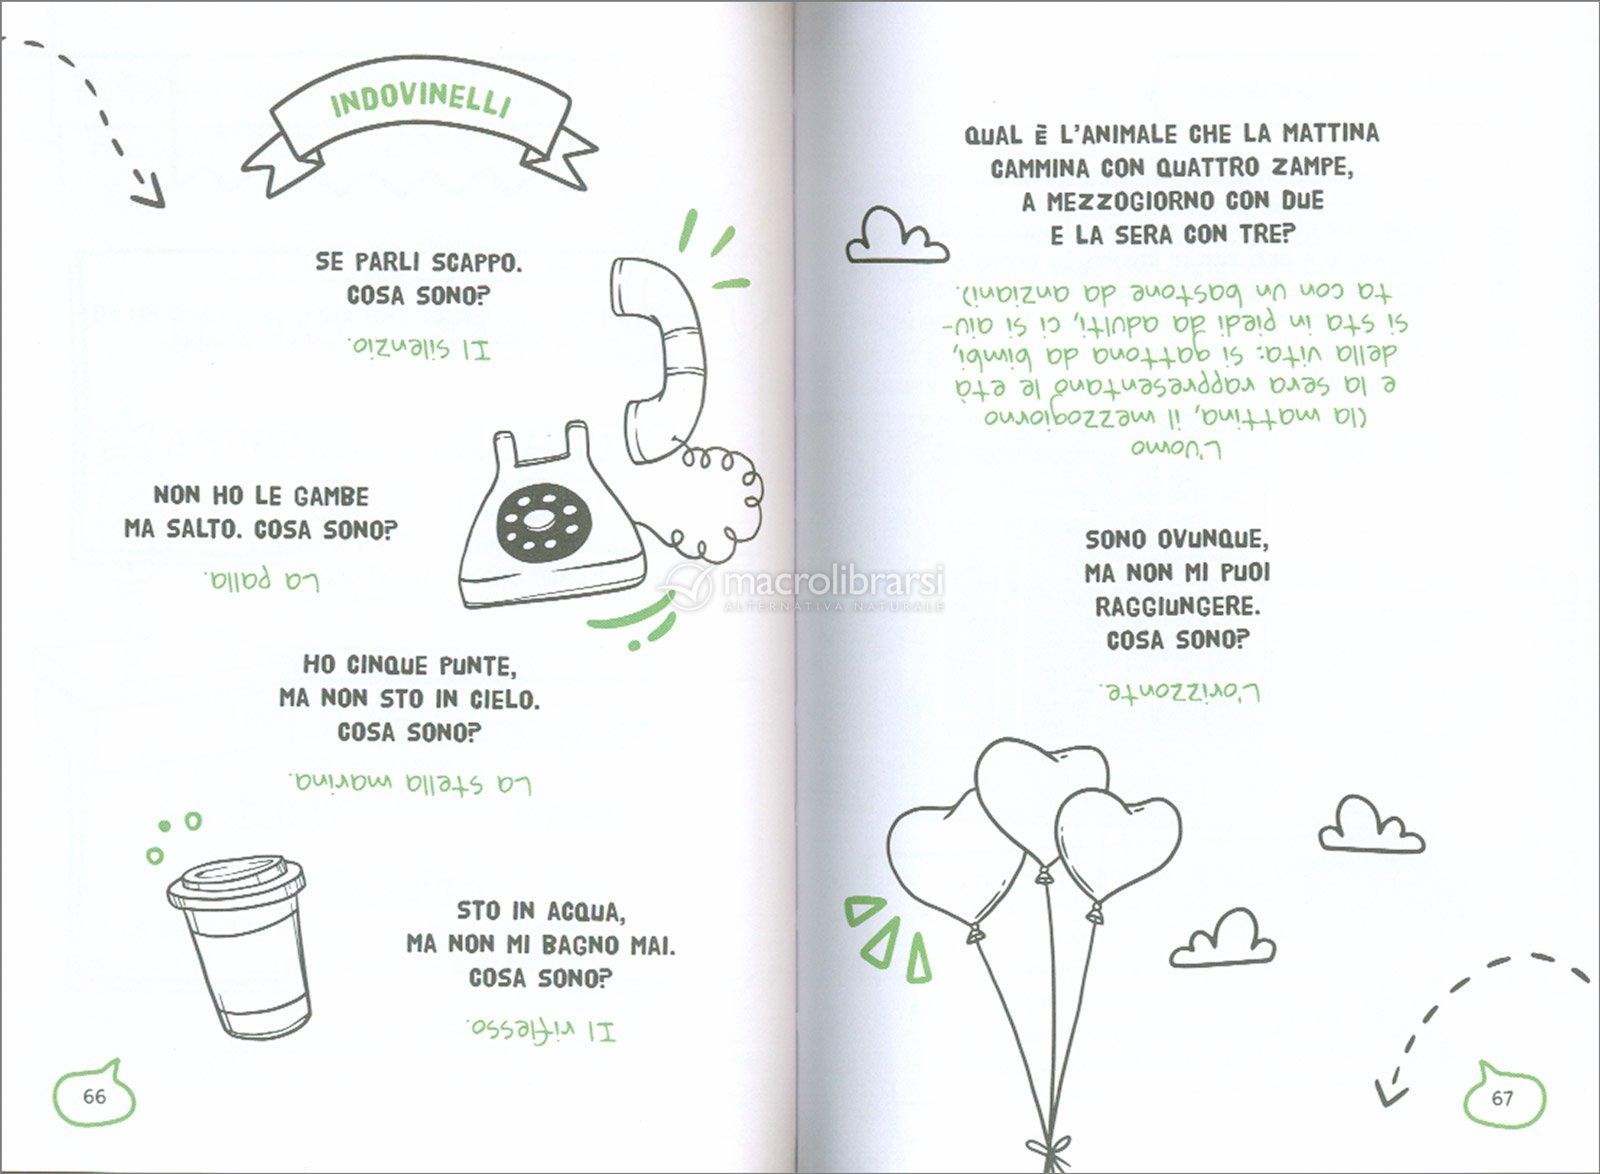 INDOVINELLI
SE PARLI SCAPPO.
COSA SONO?
Il silenzio.
NON HO LE GAMBE
MA SALTO. COSA SONO?
La palla.
HO CINQUE PUNTE,
MA NON STO IN CIELO.
COSA SONO?
La stella marina.
STO IN ACQUA,
MA NON MI BAGNO MAI.
COSA SONO?
Il riflesso.
66
macrolibrarsi
ALTERNATIVA NATURALE
QUAL È L'ANIMALE CHE LA MATTINA
CAMMINA CON QUATTRO ZAMPE,
A MEZZOGIORNO CON DUE
E LA SERA CON TRE?
L'uomo
(la mattina, il mezzogiorno
e la sera rappresentano le età
della vita: si gattona da bimbi,
si sta in piedi da adulti, ci si aiu-
ta con un bastone da anziani).
SONO OVUNQUE,
MA NON MI PUOI
RAGGIUNGERE.
COSA SONO?
L'orizzonte.
67